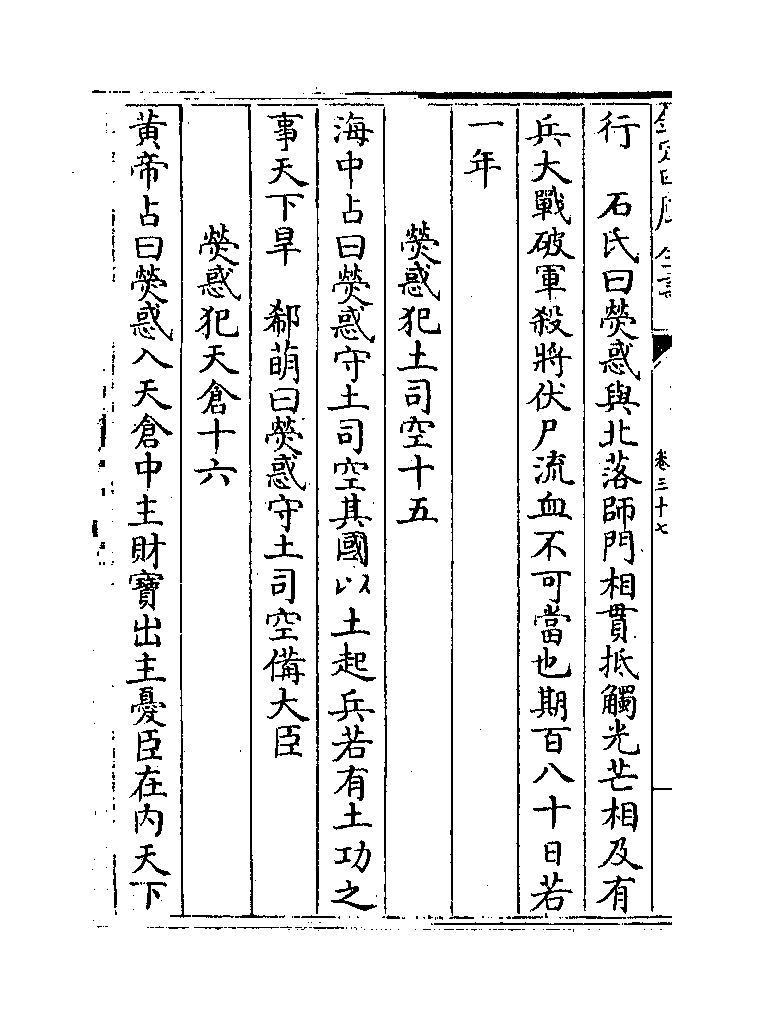 卷三十七
行　石氏曰熒惑與北落師門相貫抵觸光芒相及有
兵大戰破軍殺將伏尸流血不可當也期百八十日若
一年
熒惑犯土司空十五
海中占曰熒惑守土司空其國以土起兵若有土功之
事天下旱　郗萌曰熒惑守土司空備大臣
熒惑犯天倉十六
黃帝占曰熒惑入天倉中主財寶出主憂臣在内天下